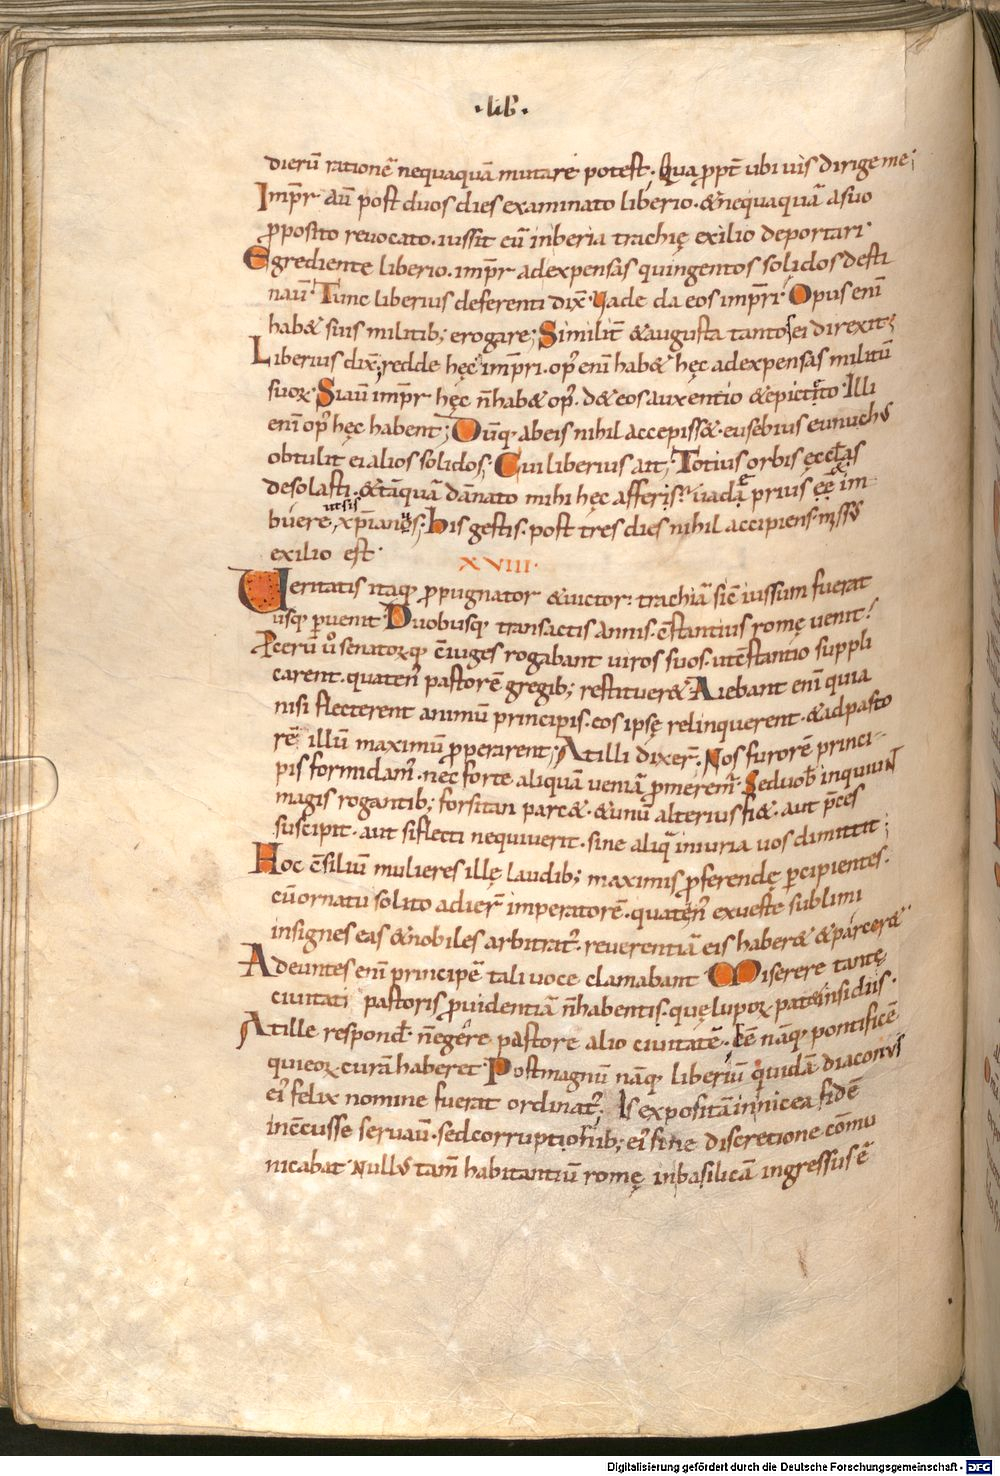 ·lib̄·
dierū rationē nequaquā mutare potest· Qua ꝓpt̄ ubi uis dirige me;
Imp̄r aū post duos dies examinato liberio· & nequaquā a suo
ꝓposito reuocato· iussit eū in beria trachię exilio deportari·
Egrediente liberio· imp̄r ad expensas quingentos solidos desti
nau̅· Tunc liberius deferenti dix̄· Uade da eos imp̄ri· Opus enī
hab& suis militib; erogare; Similit̄ & augusta tantos ei direxit;
Liberius dix̄; redde hęc imp̄ri· opꝰ enī hab& hęc ad expensas militū
suoꝝ· Si aū imp̄r hęc n̄ hab& opꝰ· d& eos auxentio & epictato· Illi
enī opꝰ hęc habent; Dūq; ab eis nihil accepiss&· eusebius eunuchꝰ
obtulit ei alios solidos; Cui liberius ait; Totius orbis ęcclas
desolasti· & tāquā dānato mihi hęc affers? uade prius & im
buere ut sis xp̄ianus; His gestis· post tres dies nihil accipiens· missꝰ
exilio est·
XVIII·
Ueritatis itaq; ꝓpugnator & uictor· trachiā sic̄ iussum fuerat
usq; ꝑuenit· Duobusq; transactis annis· c̄stantius romę uenit·
Ꝓcerū ů senatoꝝq; c̄iuges rogabant uiros suos· ut c̄stantio suppli
carent· quatenꝰ pastorē gregib; restituer&· Aiebant enī quia
nisi flecterent animū principis· eos ipsę relinquerent· & ad pasto
rē illū maximū ꝓperarent; At illi dixer̄· Nos furorē princi-
pis formidamꝰ· nec forte aliquā ueniā ꝓmeremꝰ· Sed uob̄ inquiunt
magis rogantib; forsitan parc&· & unū alterius fi&· aut p̄ces
suscipit· aut si flecti nequiuerit· sine aliqͣ iniuria uos dimittit;
Hoc c̄siliū mulieres illę laudib; maximis ꝓferendę ꝑcipientes·
cū ornatu solito adier̄ imperatorē· quatenꝰ ex ueste sublimi
insignes eas & nobiles arbitratꝰ· reuerentiā eis haber& & parcer&·
Adeuntes enī principē tali uoce clamabant· Miserere tantę
ciuitati pastoris ꝓuidentiā n̄ habentis· quę lupoꝝ pat& insidiis·
At ille respond̄· n̄ egere pastore alio ciuitatē· ēē nāq; pontificē
qui eoꝝ curā haberet· Post magnū nāq; liberiū quidā diaconus
eiꝰ felix nomine fuerat ordinatꝰ; Is expositā in nicea fidē
inc̄cusse seruau̅· sed corruptorib; eiꝰ sine discretione cōmu
nicabat· Nullꝰ tam̄ habitantiū romę in basilicā ingressus ē
Digitalisierung gefördert durch die Deutsche Forschungsgemeinschaft - DFG